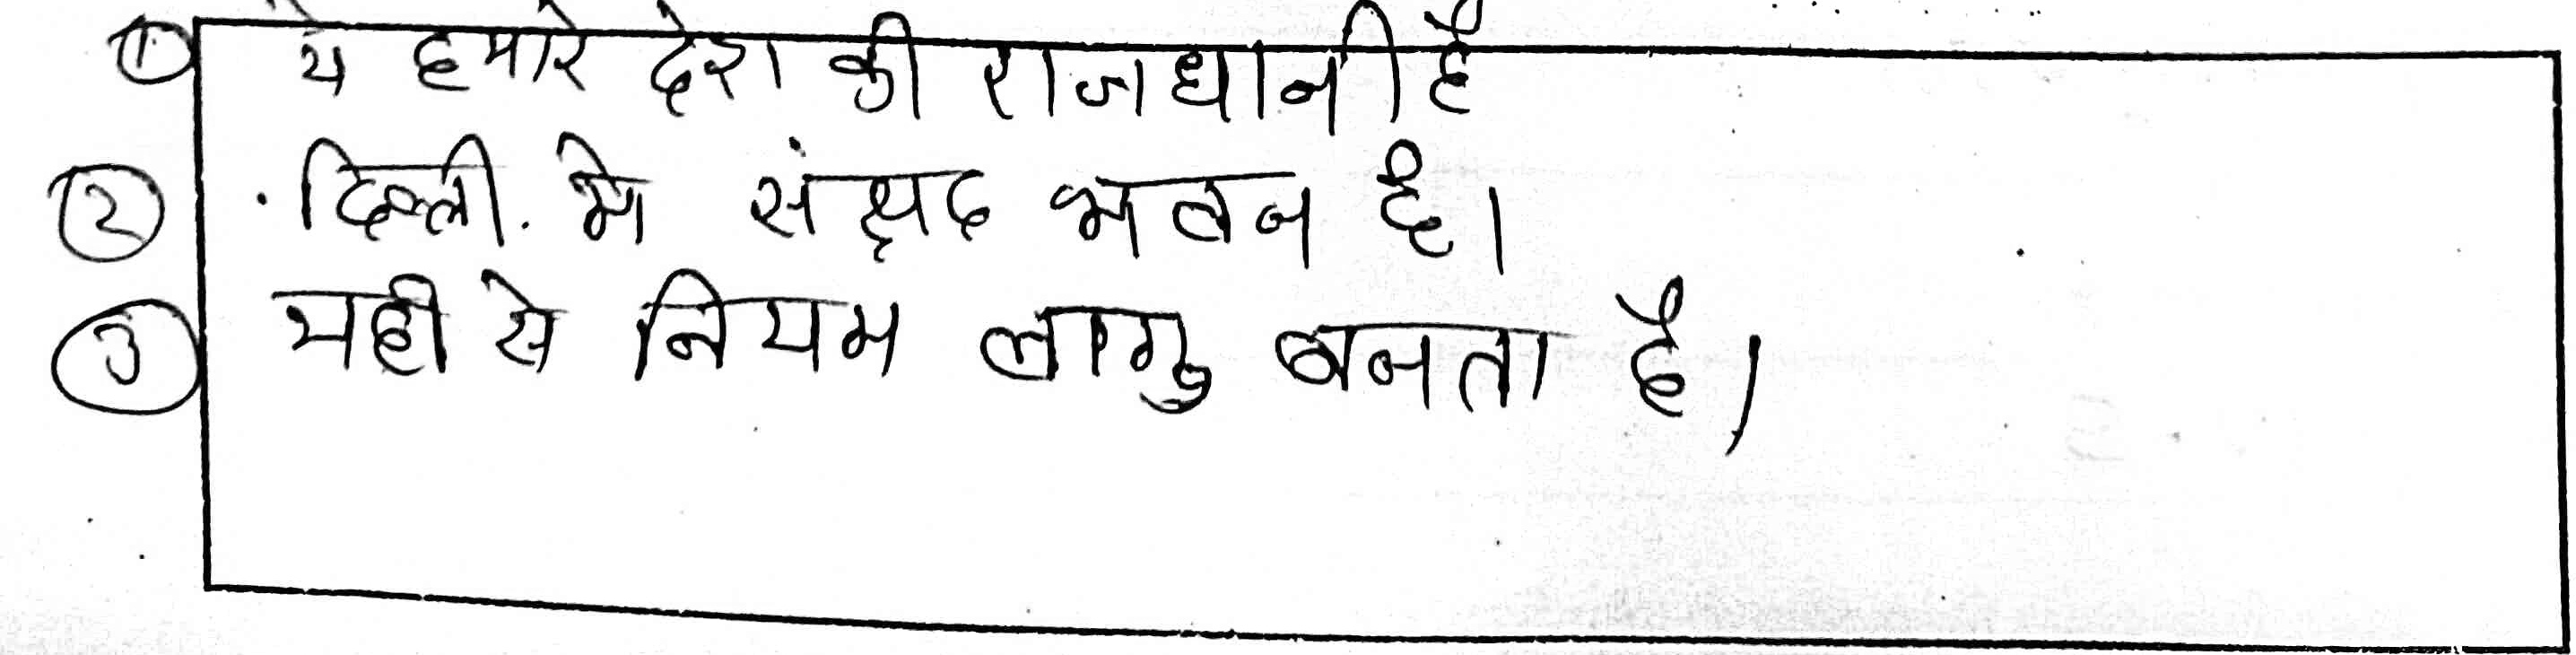 ① ये हमारे देश की राजधानी है
② दिल्ली. मे संसद भवन है।
③ यही से नियम लागु बनता है।